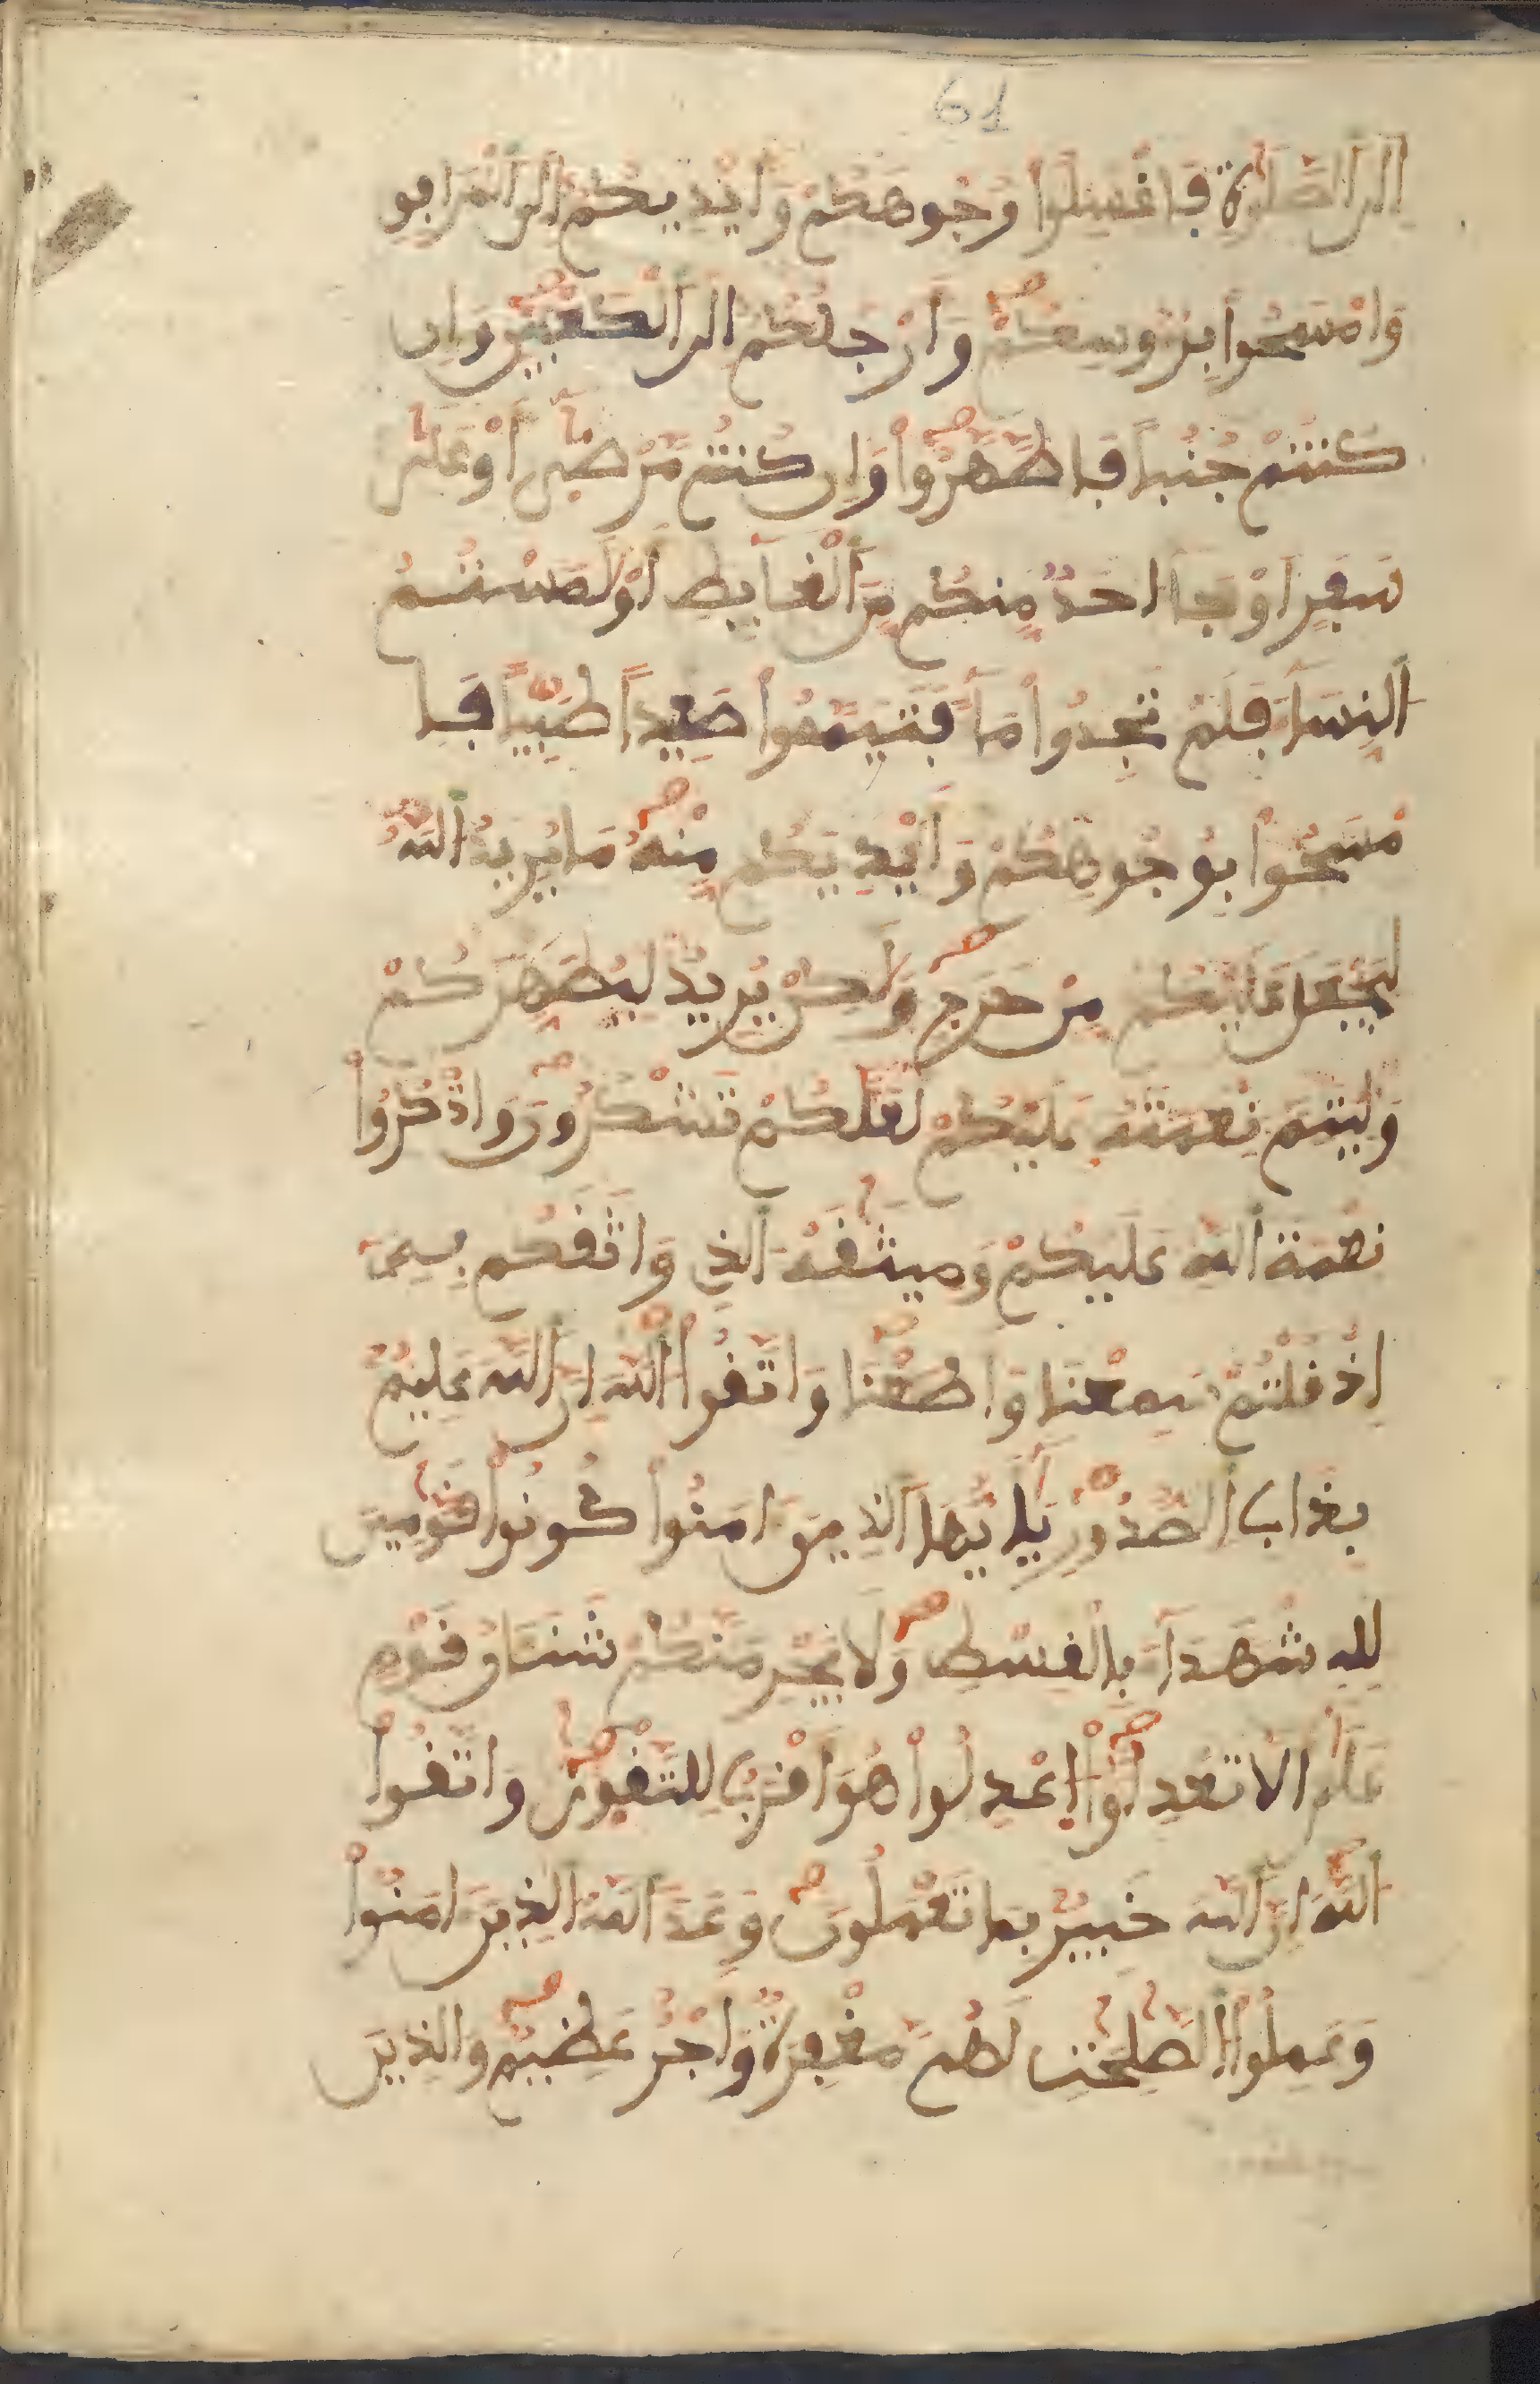 61
إِلَى ٱلصَّلَوٰةِ فَاغْسِلُوا۟ وُجُوهَكُمْ وَأَيْدِيَكُمْ إِلَى ٱلْمَرَافِقِ
وَامْسَحُوا۟ بِرُءُوسِكُمْ وَأَرْجُلَكُمْ إِلَى ٱلْكَعْبَيْنِ وَإِن
كُنتُمْ جُنُباً فَاطَّهَّرُوا۟ وَإِن كُنتُم مَّرْضَىٰ أَوْ عَلَىٰ
سَفَرٍ أَوْ جَآءَ احَدٌ مِّنكُم مِّنَ ٱلْغَآئِطِ أَوْ لَٰمَسْتُمُ
ٱلنِّسَآءَ فَلَمْ تَجِدُوا۟ مَآءً فَتَيَمَّمُوا۟ صَعِيداً طَيِّباً فَا
مْسَحُوا۟ بِوُجُوهِكُمْ وَأَيْدِيكُم مِّنْهُ مَا يُرِيدُ ٱللَّهُ
لِيَجْعَلَ عَلَيْكُم مِّنْ حَرَجٍ وَلَٰكِنْ يُرِيدُ لِيُطَهِّرَكُمْ
وَلِيُتِمَّ نِعْمَتَهُ عَلَيْكُمْ لَعَلَّكُمْ تَشْكُرُونَ وَاذْكُرُوا۟
نِعْمَةَ ٱللَّهِ عَلَيْكُمْ وَمِيثَٰقَهُ ٱلَّذِى وَاثَقَكُم بِهِ
إِذْ قُلْتُمْ سَمِعْنَا وَأَطَعْنَا وَاتَّقُوا۟ ٱللَّهَ إِنَّ ٱللَّهَ عَلِيمٌ
بِذَاتِ ٱلصُّدُورِ يَٰأَيُّهَا ٱلَّذِينَ ءَامَنُوا۟ كُونُوا۟ قَوَّٰمِينَ
لِلَّهِ شُهَدَآءَ بِالْقِسْطِ وَلَا يَجْرِمَنَّكُمْ شَنَـَٔانُ قَوْمٍ
عَلَىٰ أَلَّا تَعْدِلُوا۟ اِعْدِلُوا۟ هُوَ أَقْرَبُ لِلتَّقْوَىٰ وَاتَّقُوا۟
ٱللَّهَ إِنَّ ٱللَّهَ خَبِيرٌ بِمَا تَعْمَلُونَ وَعَدَ ٱللَّهُ ٱلَّذِينَ ءَامَنُوا۟
وَعَمِلُوا۟ ٱلصَّٰلِحَٰتِ لَهُم مَّغْفِرَةٌ وَأَجْرٌ عَظِيمٌ وَالَّذِينَ